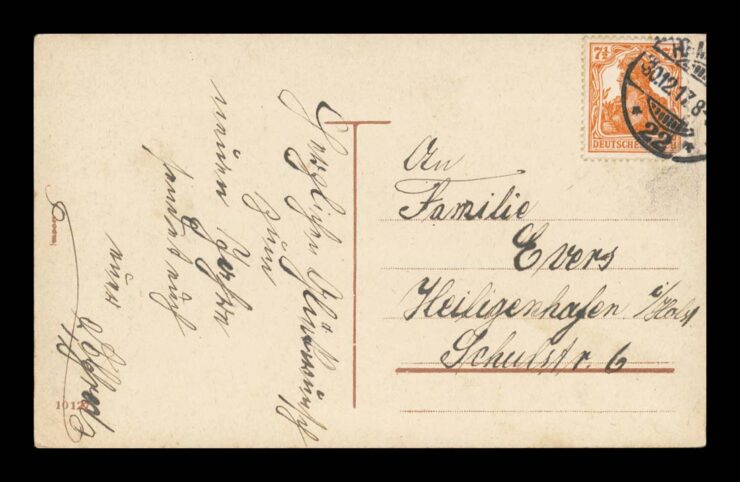 Herzlichen Glückwunsch
zum
neuen Jahre
sendet euch
euer
An
Familie
Evers
Heiligenhafen i/Holst
Schulstr. 6
7½
DEUTSCHES
30.12.17.8-
* 22 *